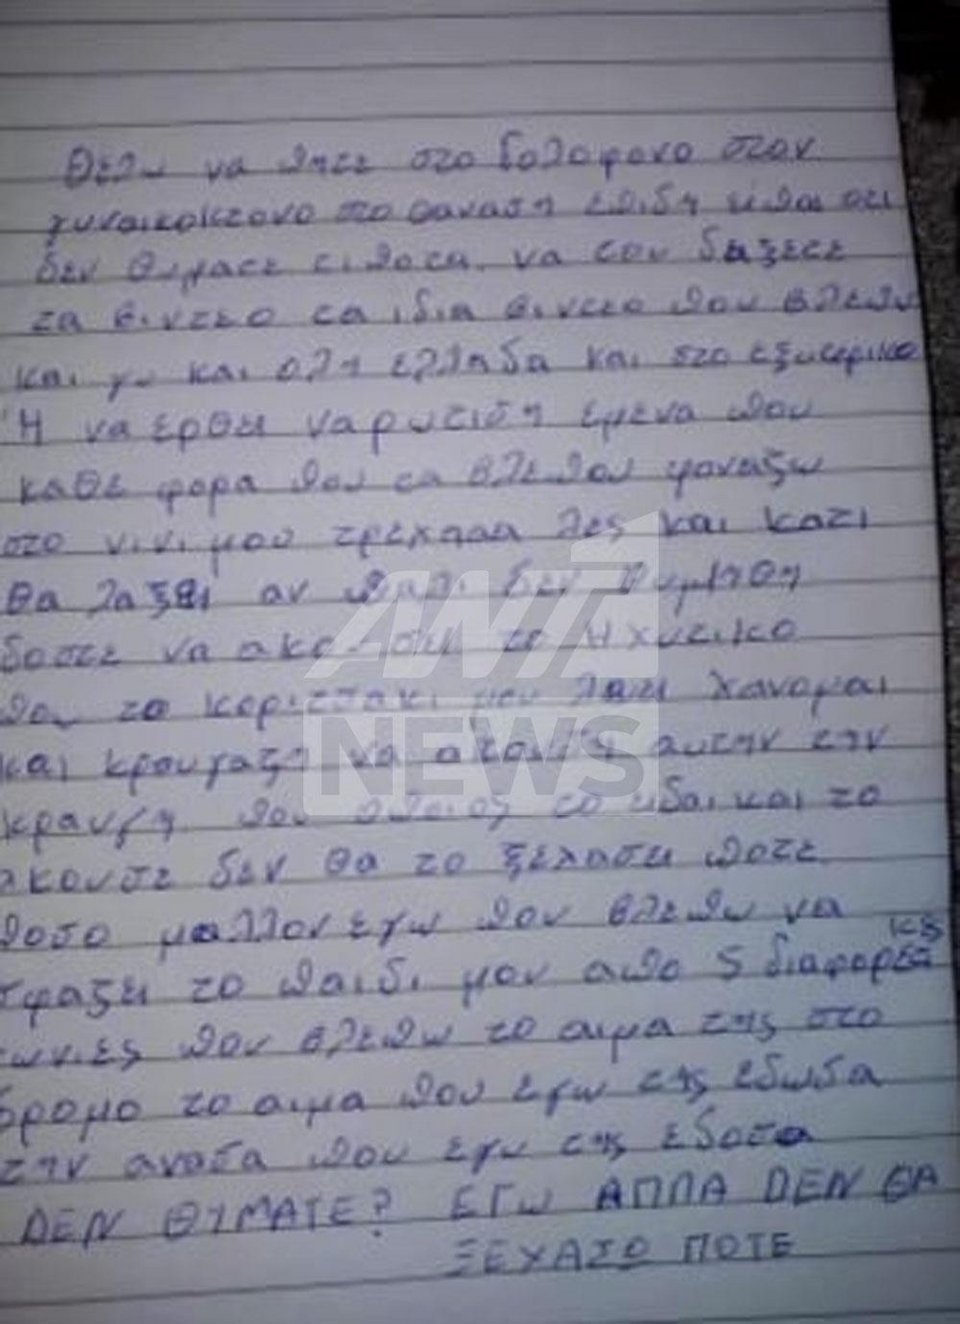 Θελω να πητε στο δολοφονο στον
γυναικοκτονο στο θαναση επιδη ειπαι οτι
δεν θυματε τιποτα. να του δειξετε
τα βιντεο τα ιδια βιντεο που βλεπω
και γω και ολη ελλαδα και στο εξωτερικο
Ή να ερθει να ρωτιση εμενα που
καθε φορα που τα βλεπου φοναξω
στο νινι μου τρεχααα λες και κατι
θα λαξει αν παλι δεν θυμηθη
δοστε να ακουση το Ηχυτικο
που το κοριτσακι μου λεει χανομαι
και κραυγαζη να ακουση αυτην την
κραυγη που οποιος το ιδαι και το
ακουσε δεν θα το ξεχασει ποτε
ποσο μαλλον εγω που βλεπω να
σφαζει το παιδι μου απο 5 διαφορετικες
γωνιες που βλεπω το αιμα της στο
δρομο το αιμα που εγω της εδωσα
την ανασα που εγω της εδοσα
ΔΕΝ ΘΥΜΑΤΕ? ΕΓΩ ΑΠΠΑ ΔΕΝ ΘΑ
ΞΕΧΑΣΩ ΠΟΤΕ
ANT1
NEWS